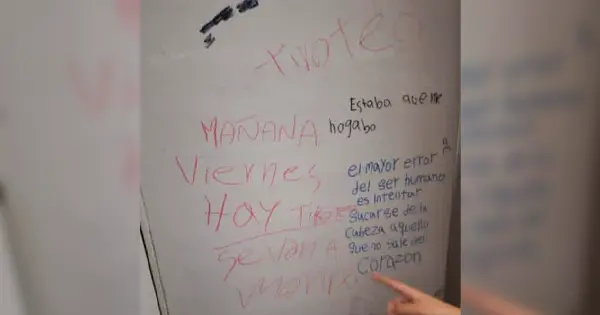 tiroteo
MAÑANA
Viernes
HOY TIROTEO
SE VAN A
MORIR
Estaba que me
hogabo
el mayor error
del ser humano
es intentar
sacarse de la
cabeza aquello
que no sale del
corazon